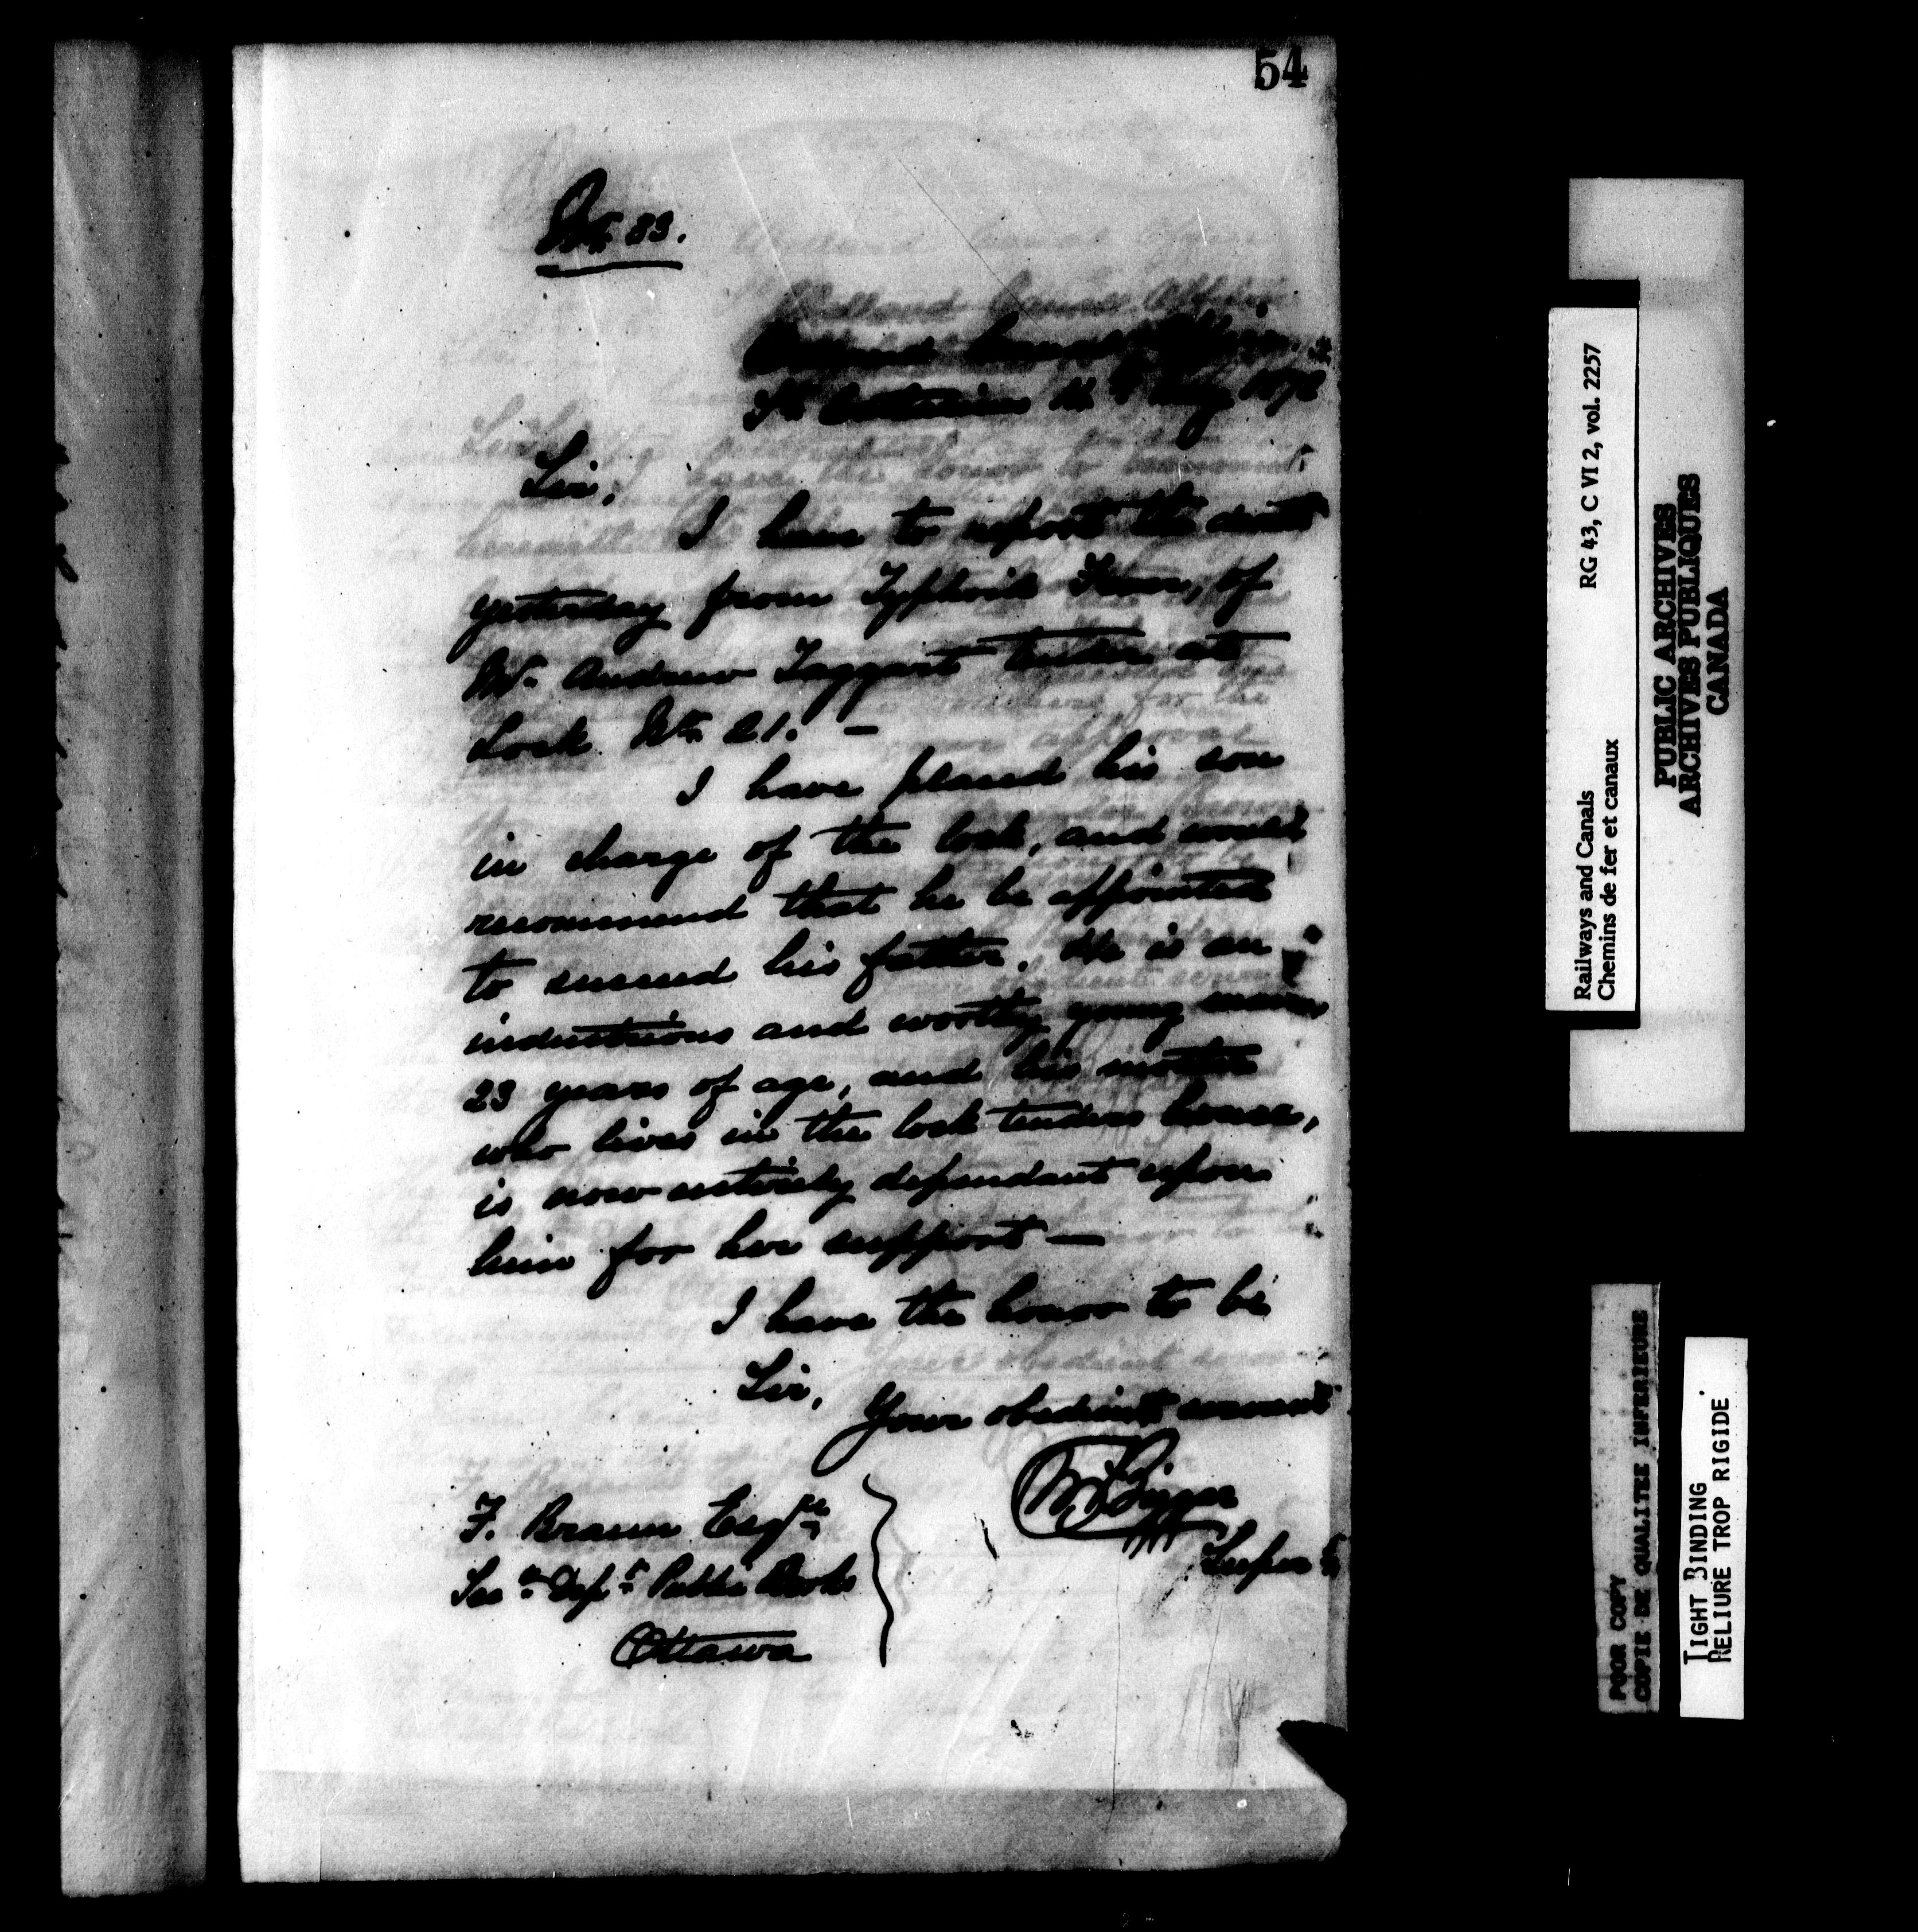 54
No. 83.
Welland Canal Office
St. Catharines 14th Aug 187
Sir,
I have to report the death
yesterday from Typhoid Fever, of
Mr. Andrew Taggart tender at
Lock No. 21. —
I have placed his son
in charge of the lock, and would
recommend that he be appointed
to succeed his father. He is an
industrious and worthy young man,
23 years of age, and his mother
who lives in the lock tenders house,
is now entirely dependant upon
him for her support —
I have the honor to be
Sir,
Your obedient servant
Supert
F. Braun Esqre
Secy Dept Public Works
Ottawa
Railways and Canals RG 43, C VI 2, vol. 2257
Chemins de fer et canaux
PUBLIC ARCHIVES
ARCHIVES PUBLIQUES
CANADA
POOR COPY
COPIE DE QUALITEE INFERIEURE
TIGHT BINDING
RELIURE TROP RIGIDE